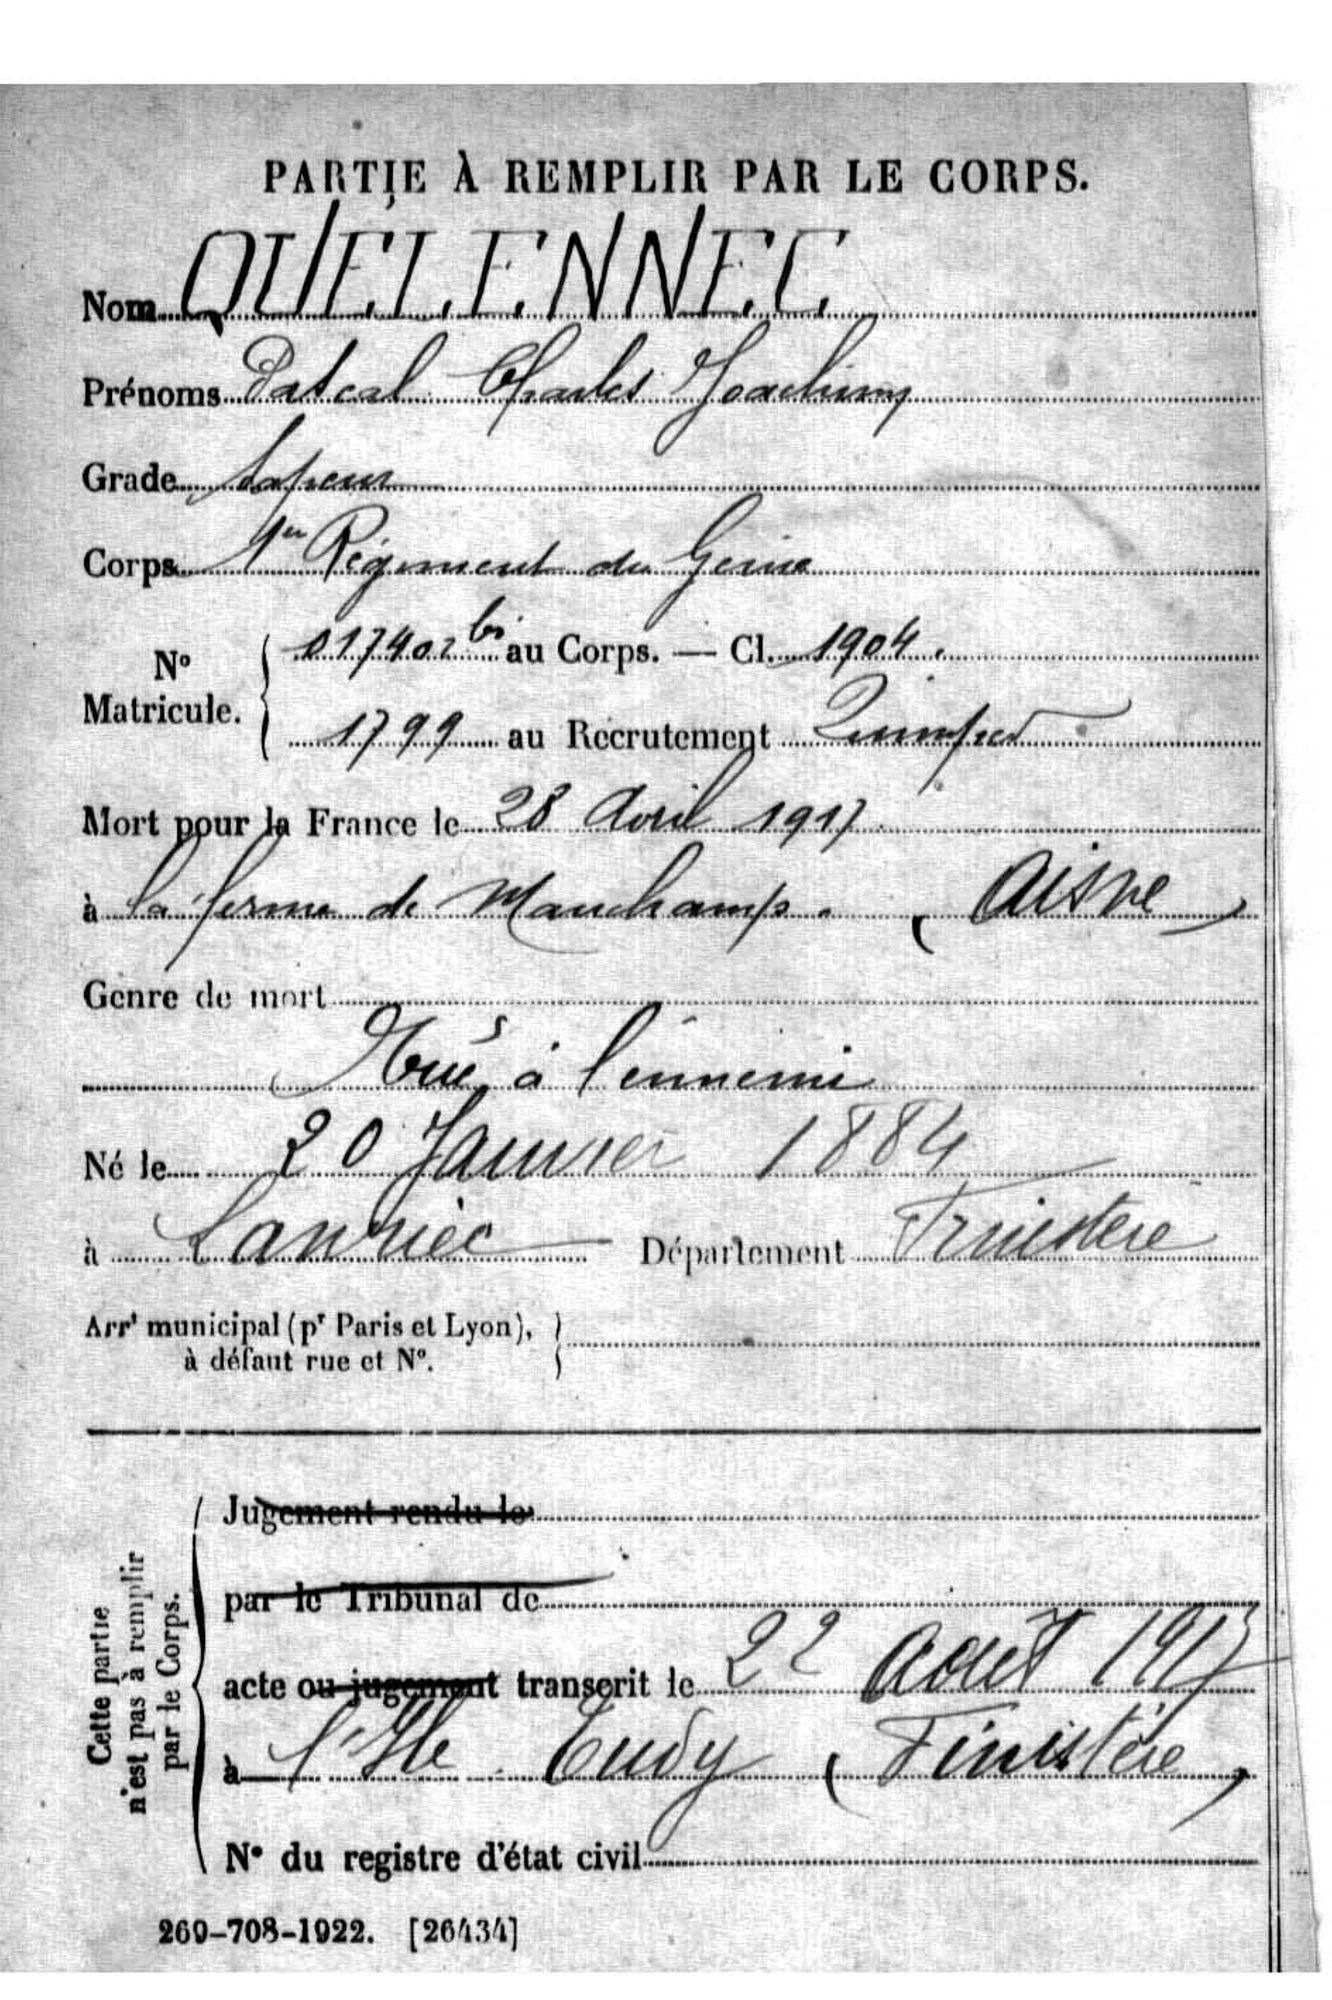 PARTIE À REMPLIR PAR LE CORPS.
Nom QUELENNEC
Prénoms Pascal Charles Joachim
Grade Sapeur
Corps 1er Régiment du Génie
N° Matricule. 017402 bis au Corps. — Cl. 1904.
1799 au Recrutement Quimper
Mort pour la France le 28 Avril 1917
à la ferme de Mauchamps. (Aisne)
Genre de mort
Tué à l'ennemi
Né le 20 Janvier 1884
à Lanriec Département Finistère
Arrt municipal (pr Paris et Lyon),
à défaut rue et N°.
Jugement rendu le
par le Tribunal de
acte ou jugement transcrit le 22 août 1917
à l'Ile Tudy (Finistère)
N° du registre d'état civil
Cette partie
n'est pas à remplir
par le Corps.
269-708-1922. [26434]